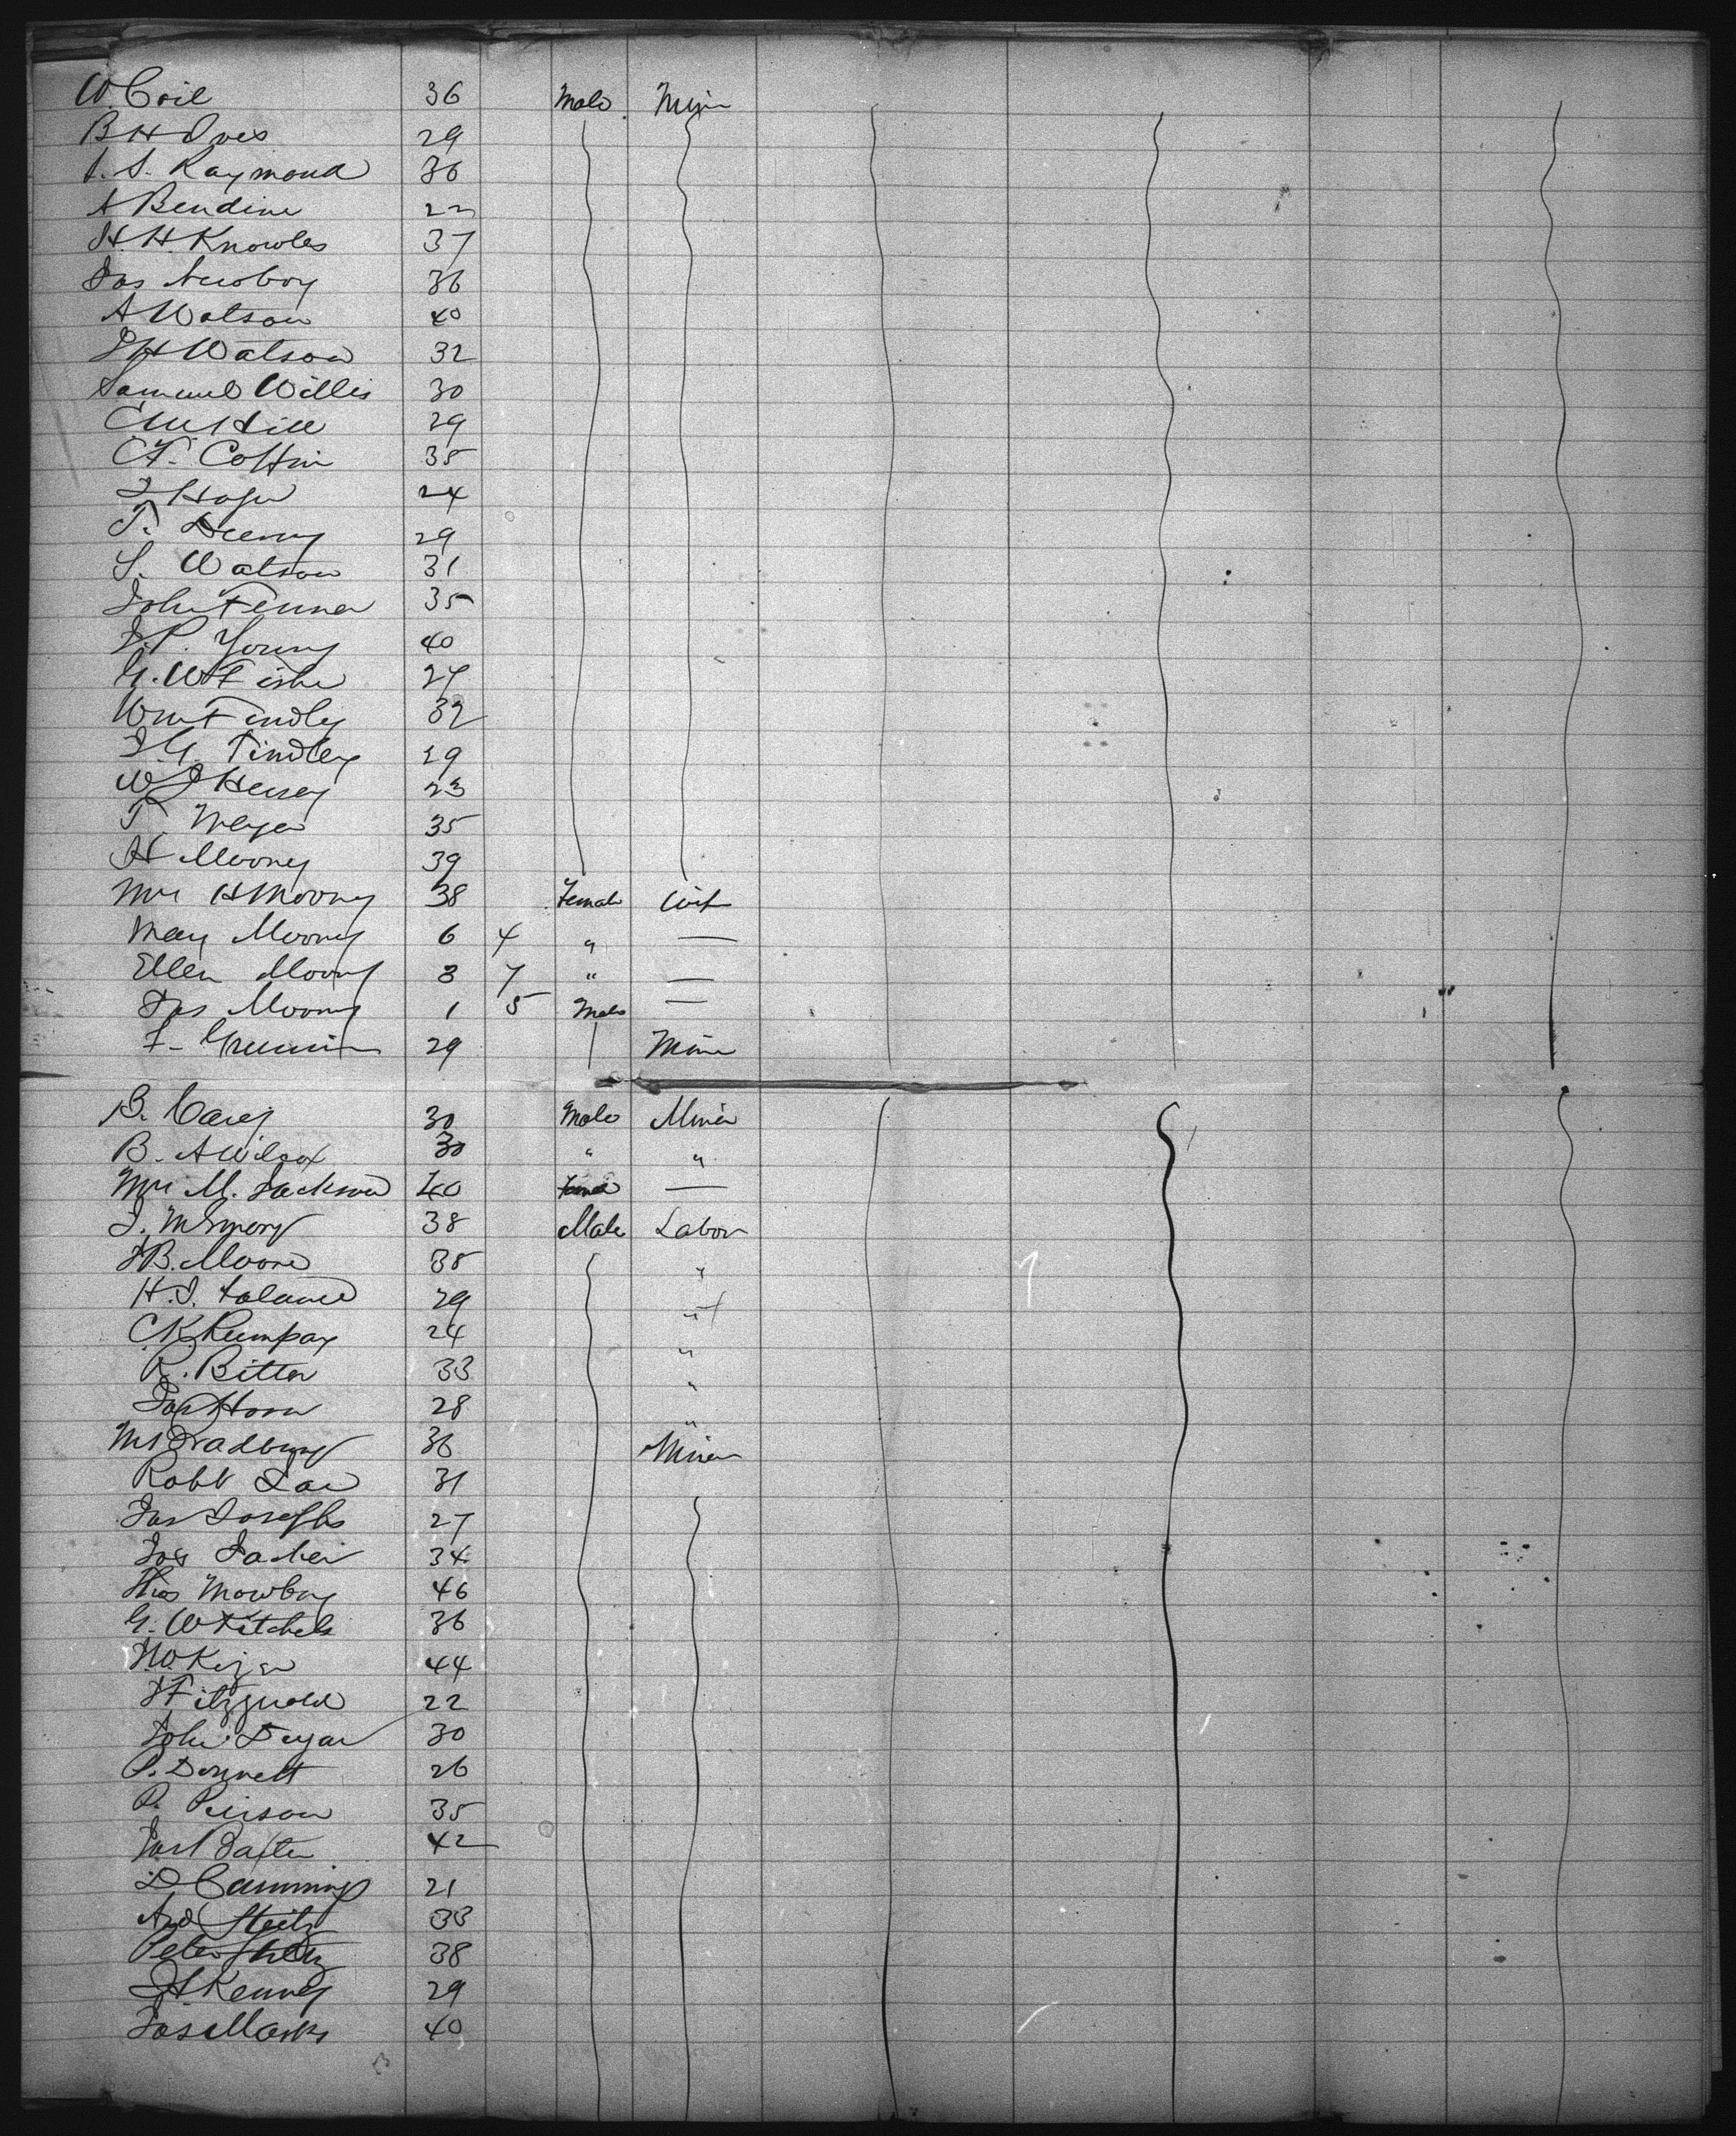 W. Coil 36 Male Miner
B H Ives 29
S. Raymond 36
A Bendine 22
H. H. Knowles 37
Jas Newboy 36
A Watson 40
J H Watson 32
Samuel Willis 30
Hill 29
C F. Coffin 35
J Hager 24
T. 29
S. Watson 31
John Fenner 35
J. P. Young 40
G. W Fisher 27
Wm Findley 32
J. G. Findley 29
W J Hersey 23
T Meyer 35
H Mooney 39
Mrs H Mooney 38 Female Wife
May Mooney 6 4 " —
Ellen Mooney 3 7 " —
Jas Mooney 1 5 Male —
F. 29 Miner
B. Carey 30 Male Miner
B. A Wilcox 30 " "
Mrs M. Jackson 40 Female —
J. 38 Male Labor
J B. Moore 35 "
H. J. 29 "
C K Rumpay 24 "
R. Bitter 33 "
Horn 28 "
Bradbury 36 Miner
Robt 31
Jas Josephs 27
Jos 34
Thos Mowbry 46
G. W Kitchels 36
W. Kizer 44
J Fitzgerald 22
John 30
P. Dennett 26
P. Peirson 35
Jas Baxter 42
D Cummings 21
And Steitz 33
Peter 38
J H Kenney 29
Jas Marks 40